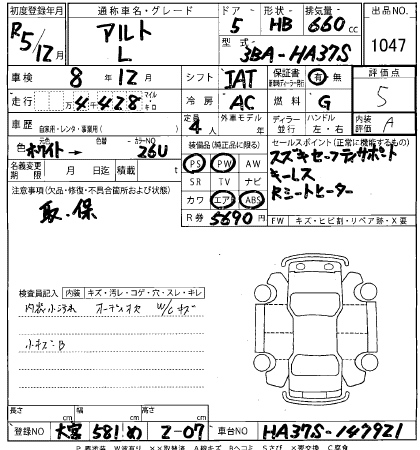 初度登録年月 通称車名・グレード ドア 形状 排気量 出品NO
R5/12月 アルト L 5 HB 660cc 1047
型式 3BA-HA37S
車検 8年12月 シフト IAT 保証書 有 無 評価点
走行 万4千428 マイル キロ 冷房 AC 燃料 G 5
車歴 自家用・レンタ・事業用( ) 定員 4人 外車モデル 年 ディーラー 並行 ハンドル 左・右 内装評価 A
色 ホワイト→ 色替 カラーNO 26U 装備品(純正品に限る) セールスポイント(正常に機能するもの)
名義変更期限 月 日迄 積載 t PS PW AW スズキセーフティサポート
キーレス
注意事項(欠品・修復・不具合箇所および状態) SR TV ナビ Rシートヒーター
取・保 カワ エアB ABS
R券 5690円 FW キズ・ヒビ割・リペア跡・X要
検査員記入 内装 キズ・汚レ・コゲ・穴・スレ・キレ
内装小汚れ オーディオ欠 W/Cキズ
小キズB
長さ cm 幅 cm 高さ cm
登録NO 大宮 581 め 2-07 車台NO HA37S-147921